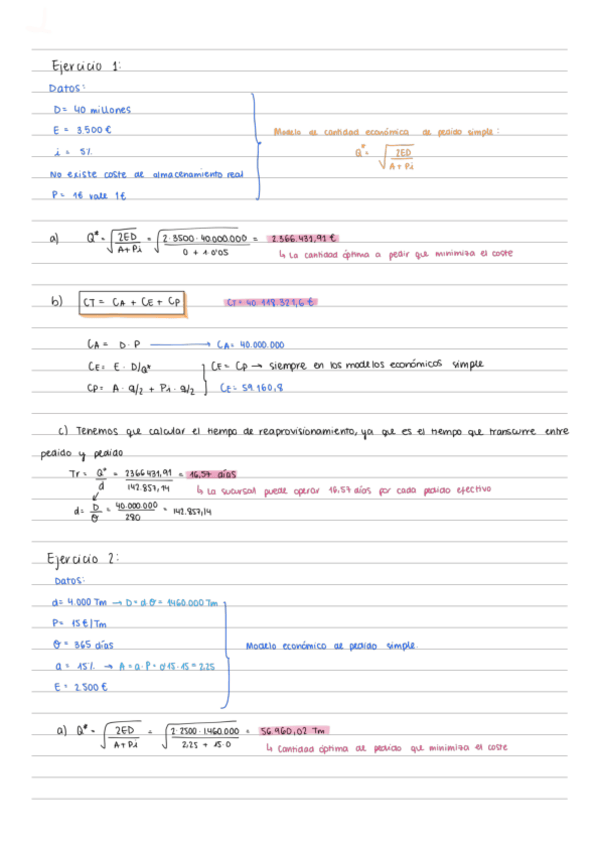 Ejercicio 1:
Datos:
D= 40 millones
E = 3500 €
i = 5%
No existe coste de almacenamiento real
P = 1€ vale 1€
Modelo de cantidad económica de pedido simple:
Q* = √(2ED / A + Pi)
a) Q* = √(2ED / A + Pi) = √(2·3500·40.000.000 / 0 + 1·0'05) = 2.366.431,91 €
↳ La cantidad óptima a pedir que minimiza el coste
b) CT = CA + CE + CP CT = 40.118.321,6 €
CA = D·P → CA = 40.000.000
CE = E·D/Q* CE = CP → siempre en los modelos económicos simple
CP = A·Q/2 + Pi·Q/2 CE = 59.160,8
c) Tenemos que calcular el tiempo de reaprovisionamiento, ya que es el tiempo que transcurre entre
pedido y pedido
Tr = Q*/d = 2366431,91 / 142.857,14 = 16,57 días
↳ La sucursal puede operar 16,57 días por cada pedido efectivo
d = D/θ = 40.000.000 / 280 = 142.857,14
Ejercicio 2:
Datos:
d = 4.000 Tm → D = d·θ = 1460.000 Tm
P = 15 €/Tm
θ = 365 días
a = 15% → A = a·P = 0'15·15 = 2.25
E = 2.500 €
Modelo económico de pedido simple.
a) Q* = √(2ED / A + Pi) = √(2·2500·1.460.000 / 2.25 + 15·0) = 56.960,02 Tm
↳ Cantidad óptima de pedido que minimiza el coste